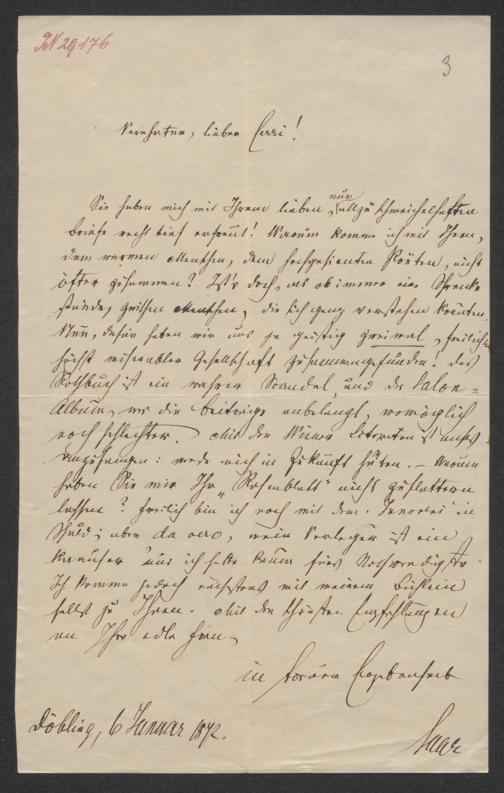 IN 29176
3
Verehrter, lieber Cerri!
Sie haben mich mit Ihrem lieben, nur allzu schmeichelhaften
Briefe recht tief erfreut! Warum komme ich mit Ihnen,
dem warmen Menschen, dem hochgesinnten Poëten, nicht
öfter zusammen? Ist's doch, als ob immer eine Schranke
stünde, zwischen Menschen, die sich ganz verstehen könnten.
Nun, dafür haben wir uns ja geistig zweimal, freilich in
höchst miserabler Gesellschaft zusammengefunden! Das
ist ein wahrer Scandal, und das Salon-
Album, was die Beiträge anbelangt, womöglich
noch schlechter. Mit den Wiener Literaten ist nichts
anzufangen: werde mich in Zukunft hüten. – Warum
haben Sie mir Ihr "Rosenblatt" nicht zuflattern
lassen? Freilich bin ich noch mit dem "Innocens" in
Schuld; aber da ist ein
und ich hatte kaum fürs Nothwendigste.
Ich komme jedoch nächstens mit meinem Büchlein
selbst zu Ihnen. Mit den schönsten Empfehlungen
an Ihre edle Frau
in treuer Ergebenheit
Saar
Döbling, 6 Januar 1872.